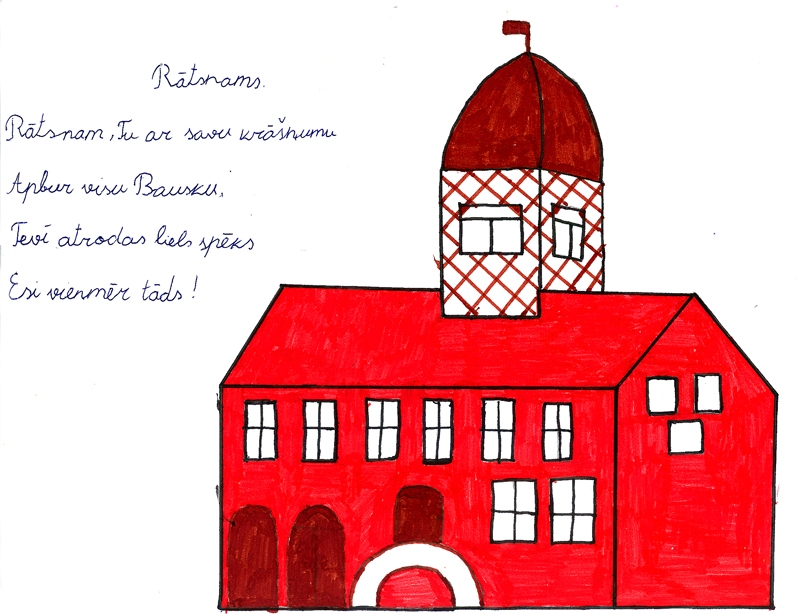 Rātsnams.
Rātsnam, Tu ar savu krāšņumu
Apbur visu Bausku,
Tevī atrodas liels spēks
Esi vienmēr tāds!